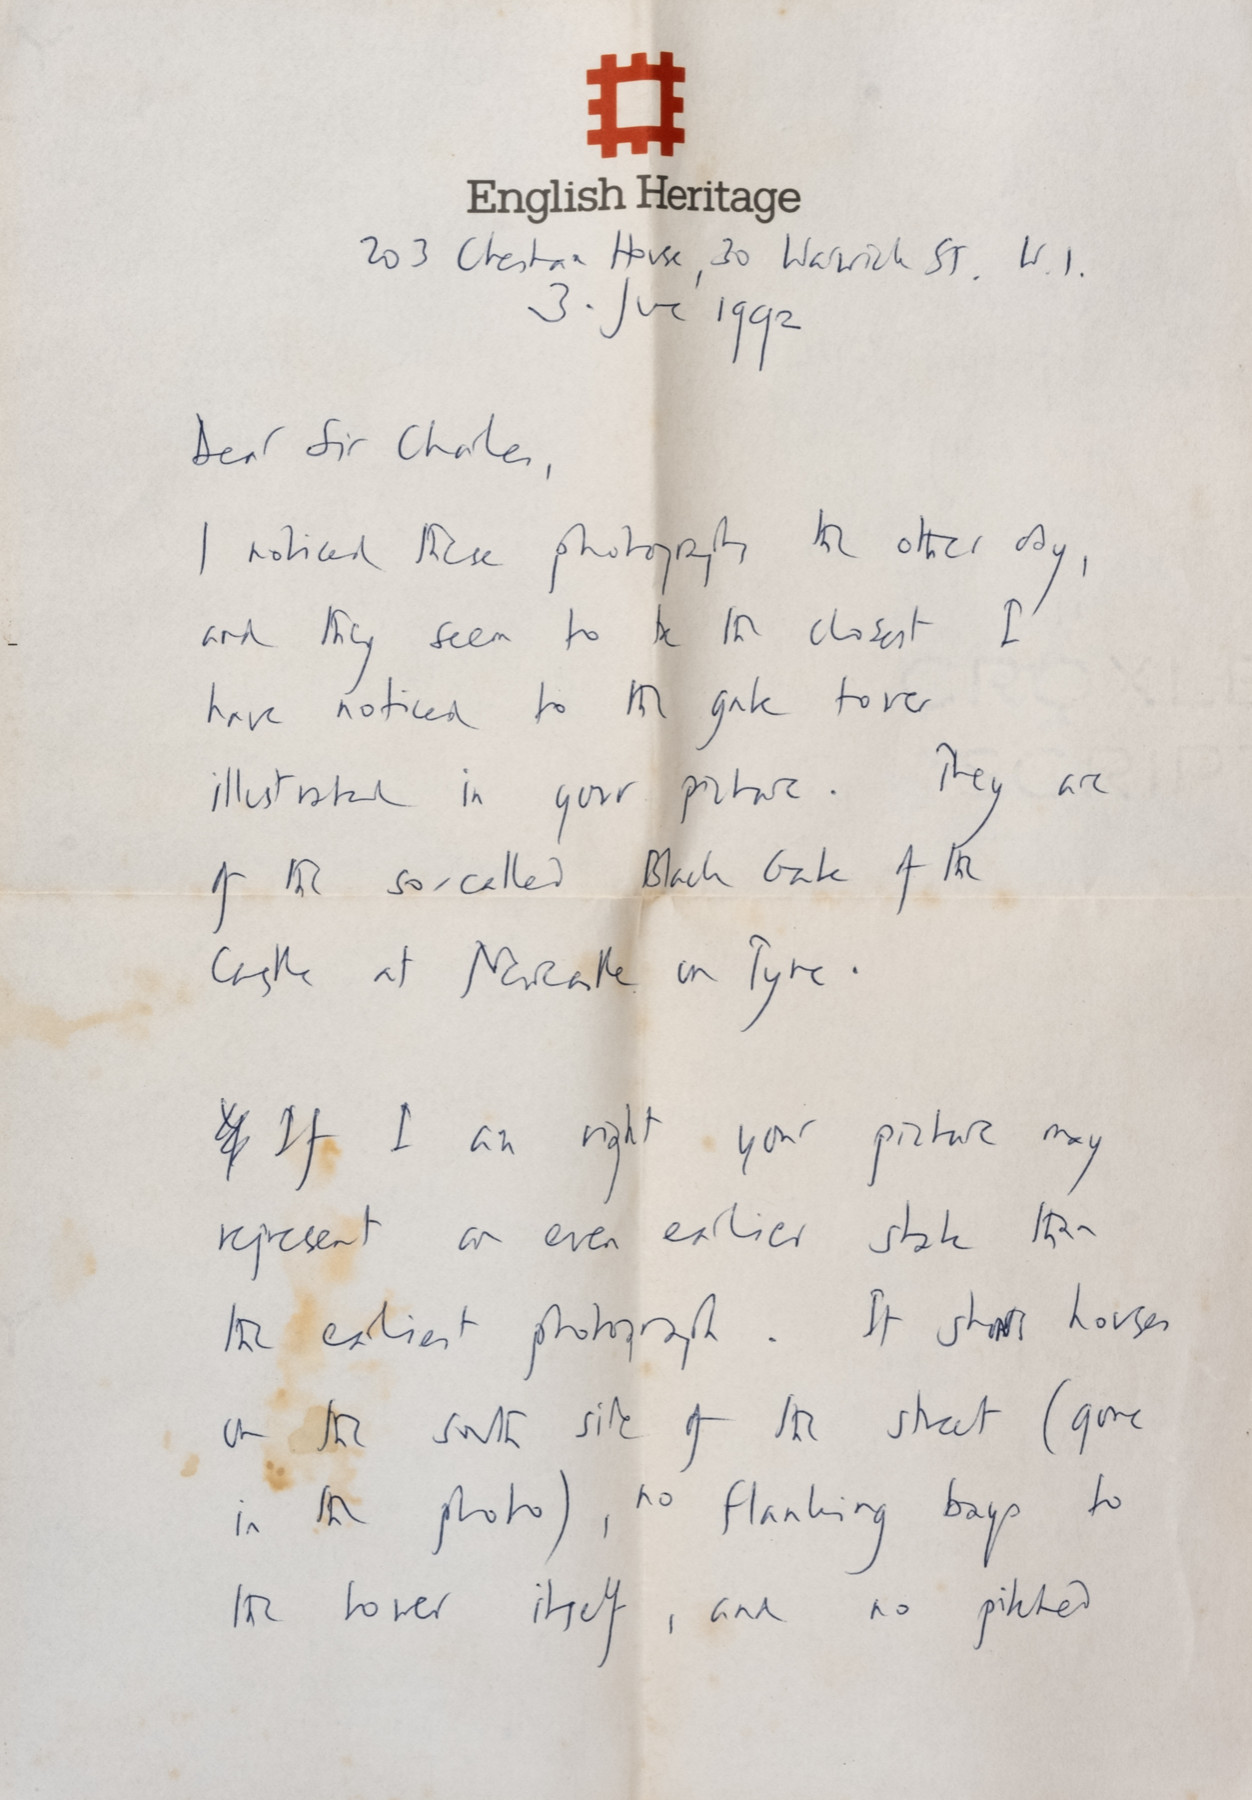 English Heritage
203 Chesham House, 30 Warwick St. W.1.
3. June 1992
Dear Sir Charles,
I noticed these photographs the other day,
and they seem to be the closest I
have noticed to the gate tower
illustrated in your picture. They are
of the so-called Black Gate of the
Castle at Newcastle on Tyne.
If I am right your picture may
represent an even earlier state than
the earliest photograph. It shows houses
on the south side of the street (gone
in the photo), no flanking bays to
the tower itself, and no pitched